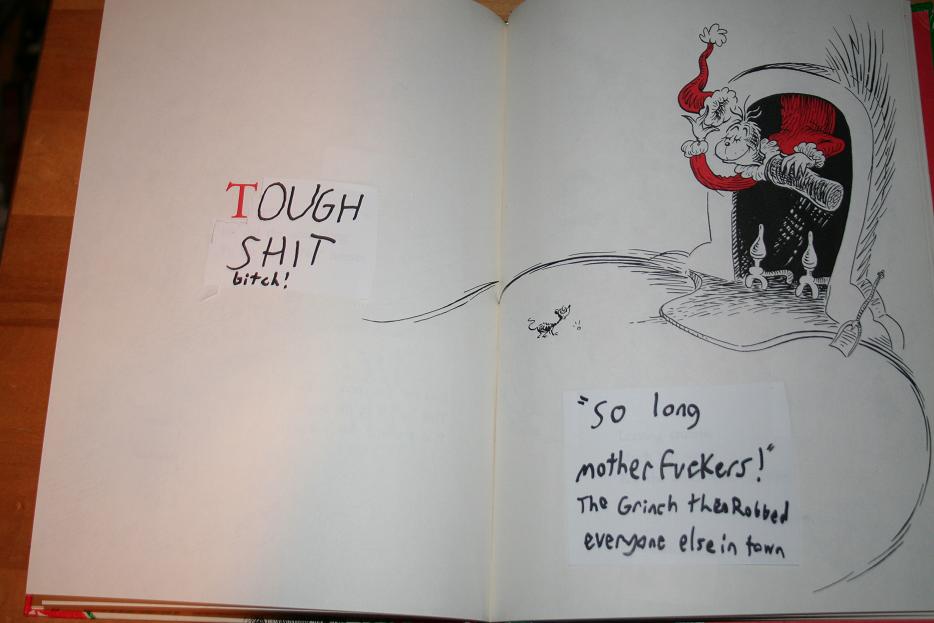 TOUGH
SHIT
bitch!
"so long
motherfuckers!"
The Grinch then Robbed
everyone else in town